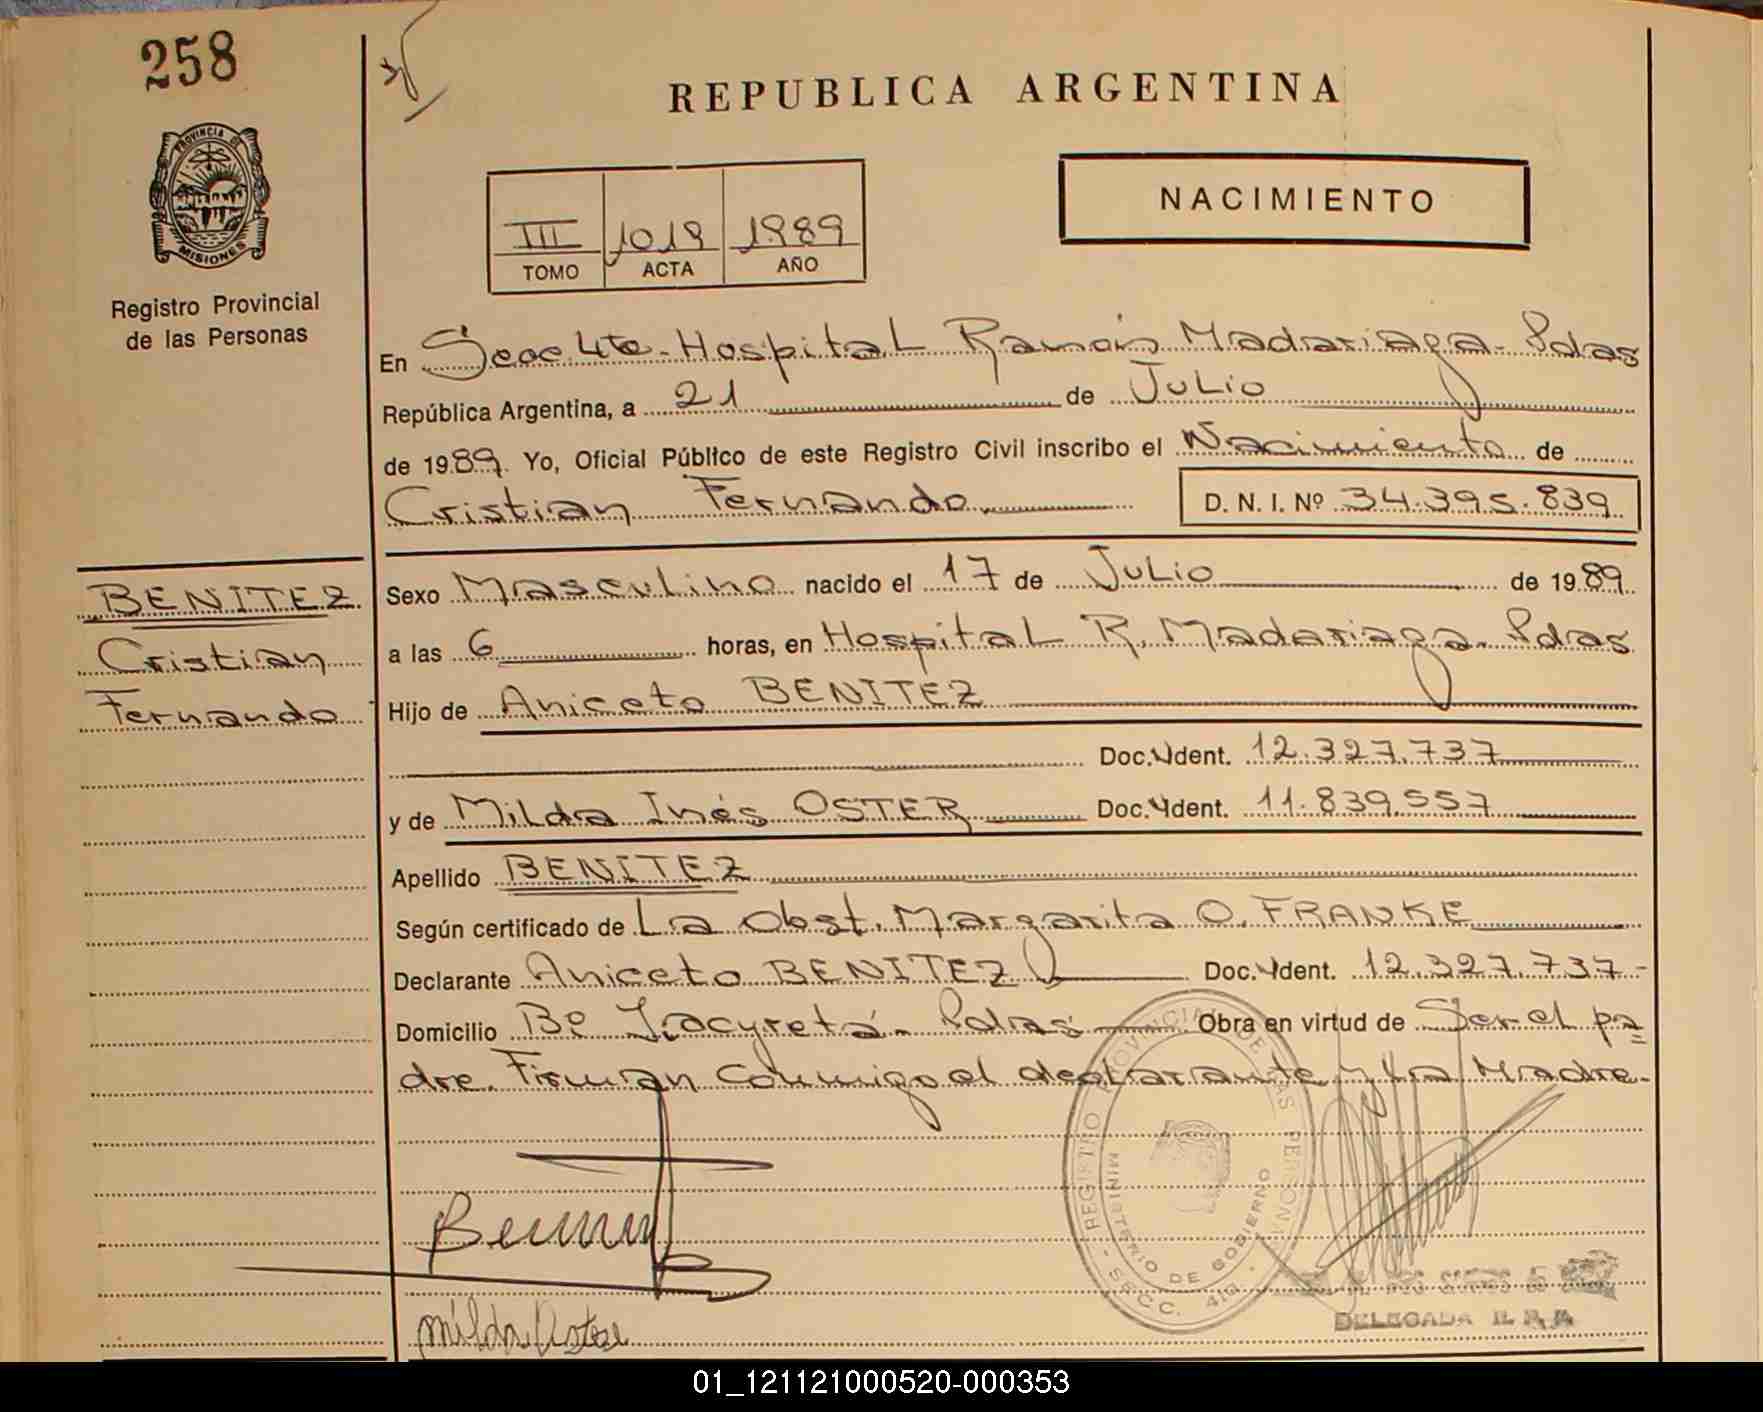 258
REPUBLICA ARGENTINA
PROVINCIA DE
MISIONES
Registro Provincial
de las Personas
NACIMIENTO
III 1019 1989
TOMO ACTA AÑO
En Secc 4ta. Hospital Ramón Madariaga - Pdas
República Argentina, a 21 de Julio
de 1989. Yo, Oficial Público de este Registro Civil inscribo el Nacimiento de
Cristian Fernando D. N. I. Nº 34.395.839
BENITEZ
Cristian
Fernando
Sexo Masculino nacido el 17 de Julio de 1989
a las 6 horas, en Hospital R. Madariaga - Pdas
Hijo de Aniceto BENITEZ
Doc. Ident. 12.327.737
y de Milda Inés OSTER Doc. Ident. 11.839.557
Apellido BENITEZ
Según certificado de La Obst. Margarita O. FRANKE
Declarante Aniceto BENITEZ Doc. Ident. 12.327.737-
Domicilio Bº Yacyretá - Pdas Obra en virtud de Ser el pa
dre. Firman conmigo el declarante y la Madre-
REGISTRO PROVINCIAL DE LAS PERSONAS
MINISTERIO DE GOBIERNO
DELEGADA
Milda Oster
01_121121000520-000353